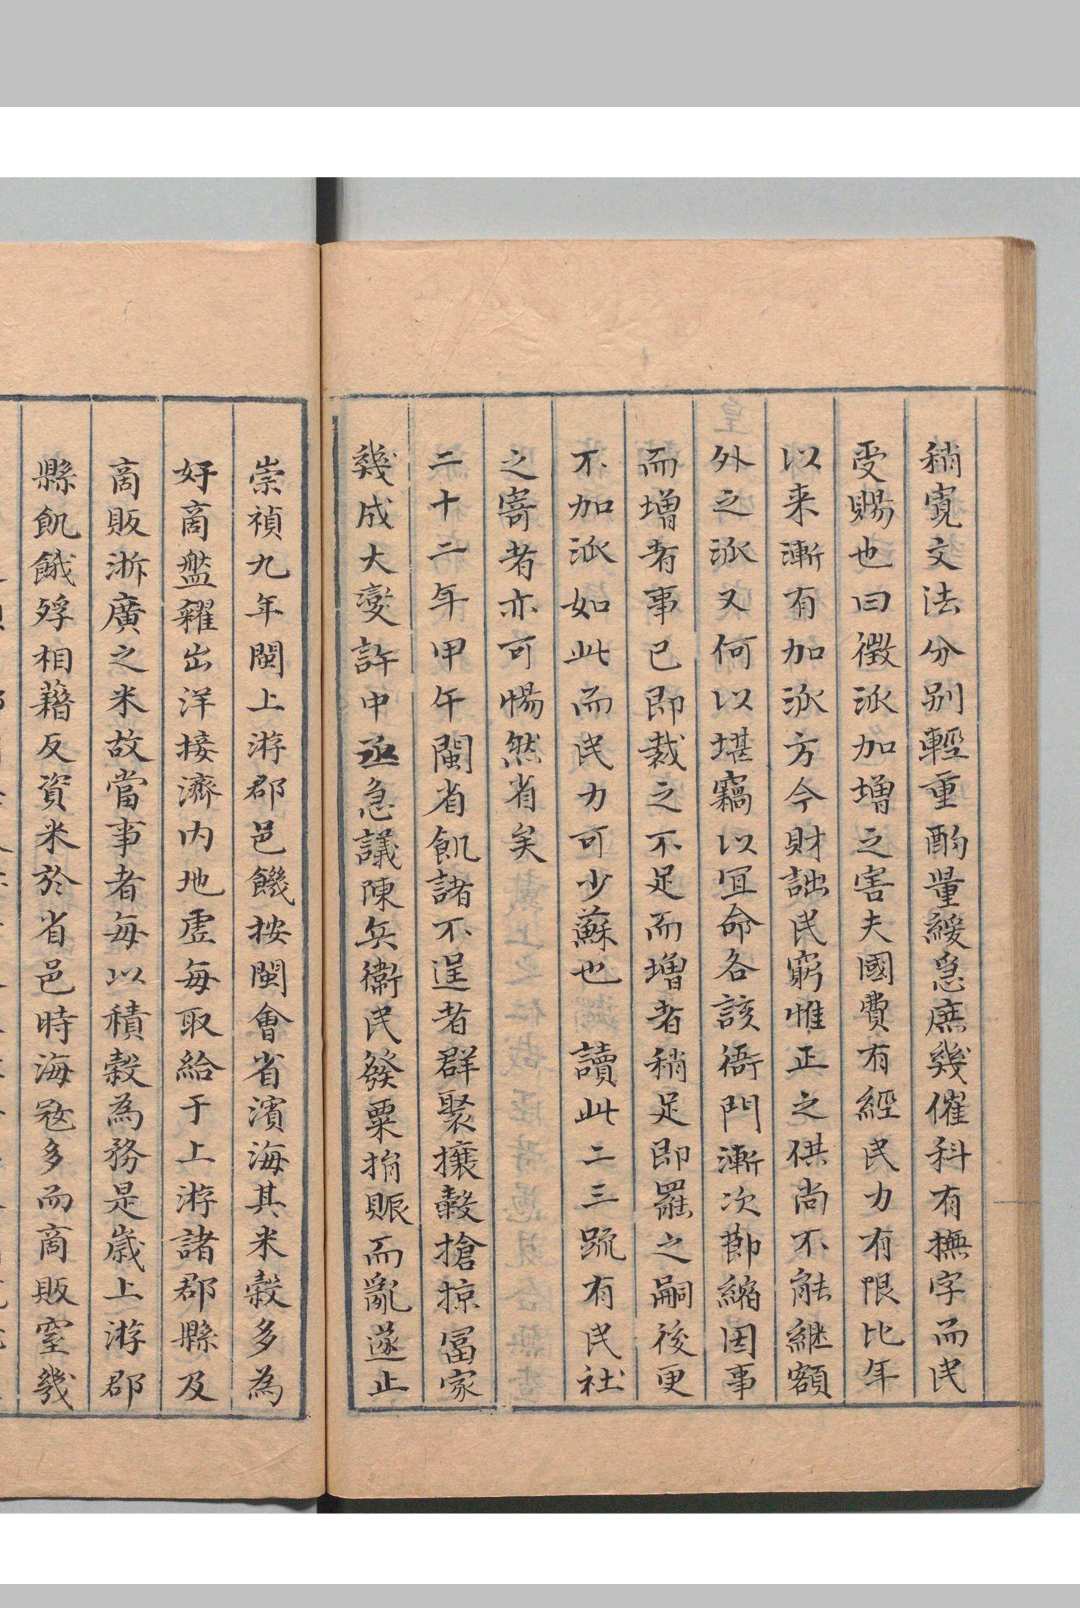 稍寬文法分别輕重酌量緩急庶幾催科有撫字而民
受賜也曰徵派加增之害夫國費有經民力有限比年
以来漸有加派方今財詘民窮惟正之供尚不能継額
外之派又何以堪竊以宜命各該衙門漸次節縮因事
而增者事已即裁之不足而增者稍足即罷之嗣後更
不加派如此而民力可少蘇也讀此二三䟽有民社
之寄者亦可惕然省矣
二十二年甲午閩省飢諸不逞者群聚攘穀搶掠冨家
幾成大變許中丞急議陳兵衞民發粟捐賑而亂遂止
崇禎九年閩上游郡邑饑按閩會省濱海其米榖多為
奸商盤糴出洋接濟内地虗每取給于上游諸郡縣及
商販浙廣之米故當事者每以積穀為務是歲上游郡
縣飢餓殍相藉反資米於省邑時海寇多而商販窒幾